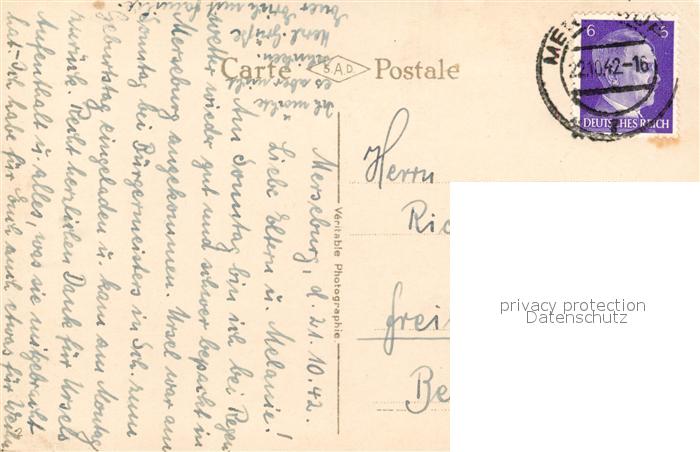 Carte Postale
S.A.D.
Véritable Photographie
6 6
DEUTSCHES REICH
22.10.42-16
Merseburg, d. 21.10.42.
Liebe Eltern u. Melanie!
Am Sonntag bin ich bei Regen-
wetter wieder gut und schwer bepackt in
Merseburg angekommen. Ursel war am
Sonntag bei Bürgermeisters in Sch. zum
Geburtstag eingeladen u. kam am Montag
zurück. Recht herzlichen Dank für Ursels
Aufenthalt u. alles, was sie mitgebracht
hat. Ich habe für Euch auch etwas für Weih
es aber nicht
Herzl. Grüße
Euer mit Familie.
Herrn
Ric
Frei
Be
privacy protection
Datenschutz